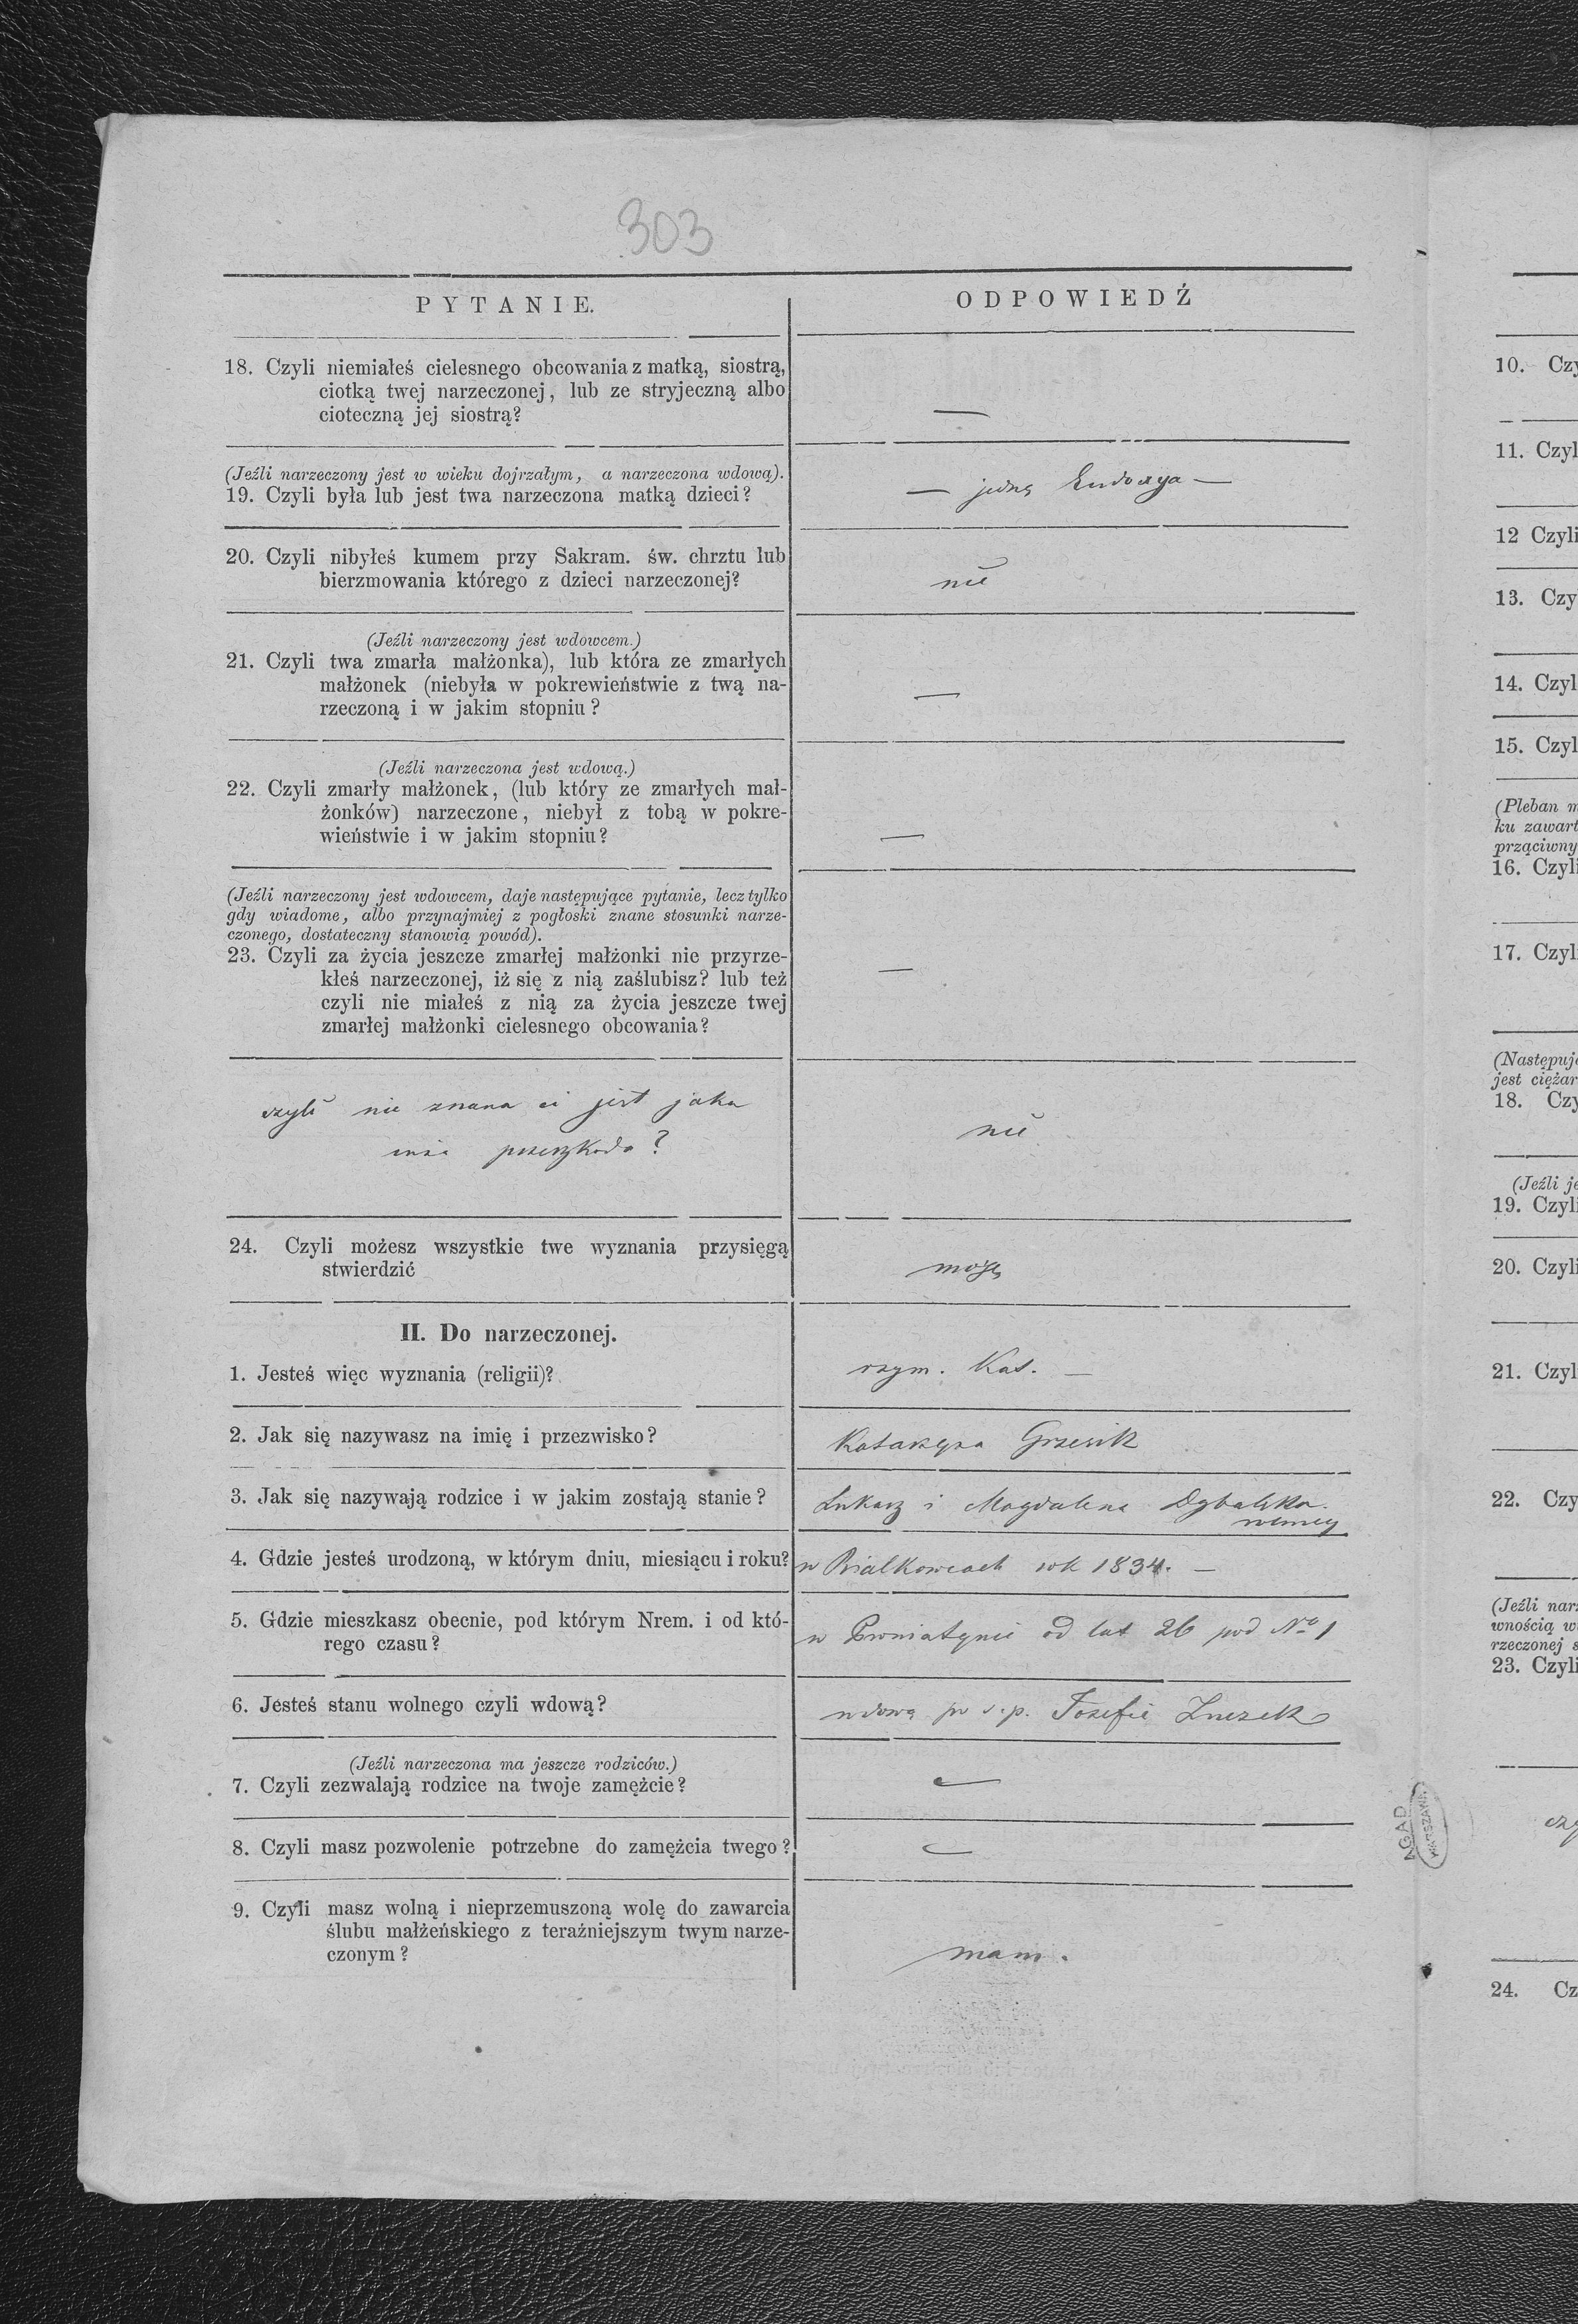 303
PYTANIE.
ODPOWIEDŹ
18. Czyli niemiałeś cielesnego obcowania z matką, siostrą,
ciotką twej narzeczonej, lub ze stryjeczną albo
cioteczną jej siostrą?
—
(Jeźli narzeczony jest w wieku dojrzałym, a narzeczona wdową).
19. Czyli była lub jest twa narzeczona matką dzieci?
— jedną —
20. Czyli nibyłeś kumem przy Sakram. św. chrztu lub
bierzmowania którego z dzieci narzeczonej?
nie
(Jeźli narzeczony jest wdowcem.)
21. Czyli twa zmarła małżonka), lub która ze zmarłych
małżonek (niebyła w pokrewieństwie z twą na-
rzeczoną i w jakim stopniu?
—
(Jeźli narzeczona jest wdową.)
22. Czyli zmarły małżonek, (lub który ze zmarłych mał-
żonków) narzeczone, niebył z tobą w pokre-
wieństwie i w jakim stopniu?
—
(Jeźli narzeczony jest wdowcem, daje następujące pytanie, lecz tylko
gdy wiadome, albo przynajmiej z pogłoski znane stosunki narze-
czonego, dostateczny stanowią powód).
23. Czyli za życia jeszcze zmarłej małżonki nie przyrze-
kłeś narzeczonej, iż się z nią zaślubisz? lub też
czyli nie miałeś z nią za życia jeszcze twej
zmarłej małżonki cielesnego obcowania?
—
czyli nie znana ci jest jaka
inna przeszkoda?
nie
24. Czyli możesz wszystkie twe wyznania przysięgą
stwierdzić
mogę
II. Do narzeczonej.
1. Jesteś więc wyznania (religii)?
rzym. Kat. —
2. Jak się nazywasz na imię i przezwisko?
Katarzyna Grzesik
3. Jak się nazywają rodzice i w jakim zostają stanie?
Łukasz i Magdalena Dybalska
4. Gdzie jesteś urodzoną, w którym dniu, miesiącu i roku?
w Białkowcach rok 1834. —
5. Gdzie mieszkasz obecnie, pod którym Nrem. i od któ-
rego czasu?
w Pomiatynie od lat 26 pod No 1
6. Jesteś stanu wolnego czyli wdową?
wdową po ś.p. Józefie
(Jeźli narzeczona ma jeszcze rodziców.)
7. Czyli zezwalają rodzice na twoje zamężcie?
—
8. Czyli masz pozwolenie potrzebne do zamężcia twego?
—
9. Czyli masz wolną i nieprzemuszoną wolę do zawarcia
ślubu małżeńskiego z teraźniejszym twym narze-
czonym?
mam.
AGAD
WARSZAWA
10. Czy
11. Czyl
12 Czyli
13. Czy
14. Czyl
15. Czyl
(Pleban m
ku zawart
prząciwny
16. Czyli
17. Czyl
(Następuj
jest ciężar
18. Czy
(Jeźli je
19. Czyli
20. Czyli
21. Czyl
22. Czy
(Jeźli nar
wnością w
rzeczonej s
23. Czyli
czy
24. Cz